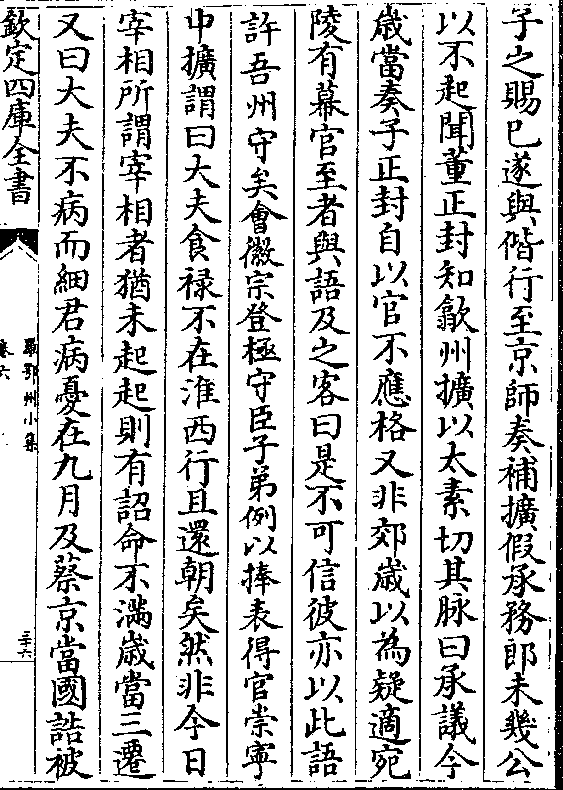 子之賜巳遂與偕行至京師奏補擴假承務郎未幾公
以不起聞董正封知歙州擴以太素切其脉曰承議今
歳當奏子正封自以官不應格又非郊歳以為疑適宛
陵有幕官至者與語及之客曰是不可信彼亦以此語
許吾州守矣會徽宗登極守臣子弟例以捧表得官崇寧
中擴謂曰大夫食禄不在淮西行且還朝矣然非今日
宰相所謂宰相者猶未起起則有詔命不滿歳當三遷
又曰大夫不病而細君病憂在九月及蔡京當國誥被
欽定四庫全書
羅鄂州小集
卷六
三十六